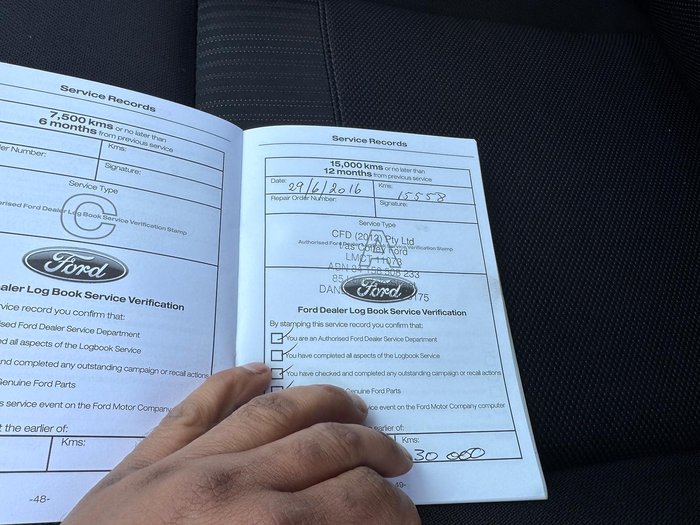 Service Records
7,500 kms or no later than
6 months from previous service
der Number:
Kms:
Signature:
Service Type
C
orised Ford Dealer Log Book Service Verification Stamp
Ford
aler Log Book Service Verification
vice record you confirm that:
ised Ford Dealer Service Department
d all aspects of the Logbook Service
and completed any outstanding campaign or recall actions
Genuine Ford Parts
s service event on the Ford Motor Company
t the earlier of:
Kms:
-48-
Service Records
15,000 kms or no later than
12 months from previous service
Date: 29/6/2016
Kms: 15558
Repair Order Number:
Signature:
Service Type
A
CFD (2012) Pty Ltd
Authorised Ford Service Verification Stamp
Ford
LMCT 11073
233
85
DAN 175
Ford
Ford Dealer Log Book Service Verification
By stamping this service record you confirm that:
You are an Authorised Ford Dealer Service Department
You have completed all aspects of the Logbook Service
You have checked and completed any outstanding campaign or recall actions
Genuine Ford Parts
service event on the Ford Motor Company computer
earlier of:
Kms:
30 000
49-